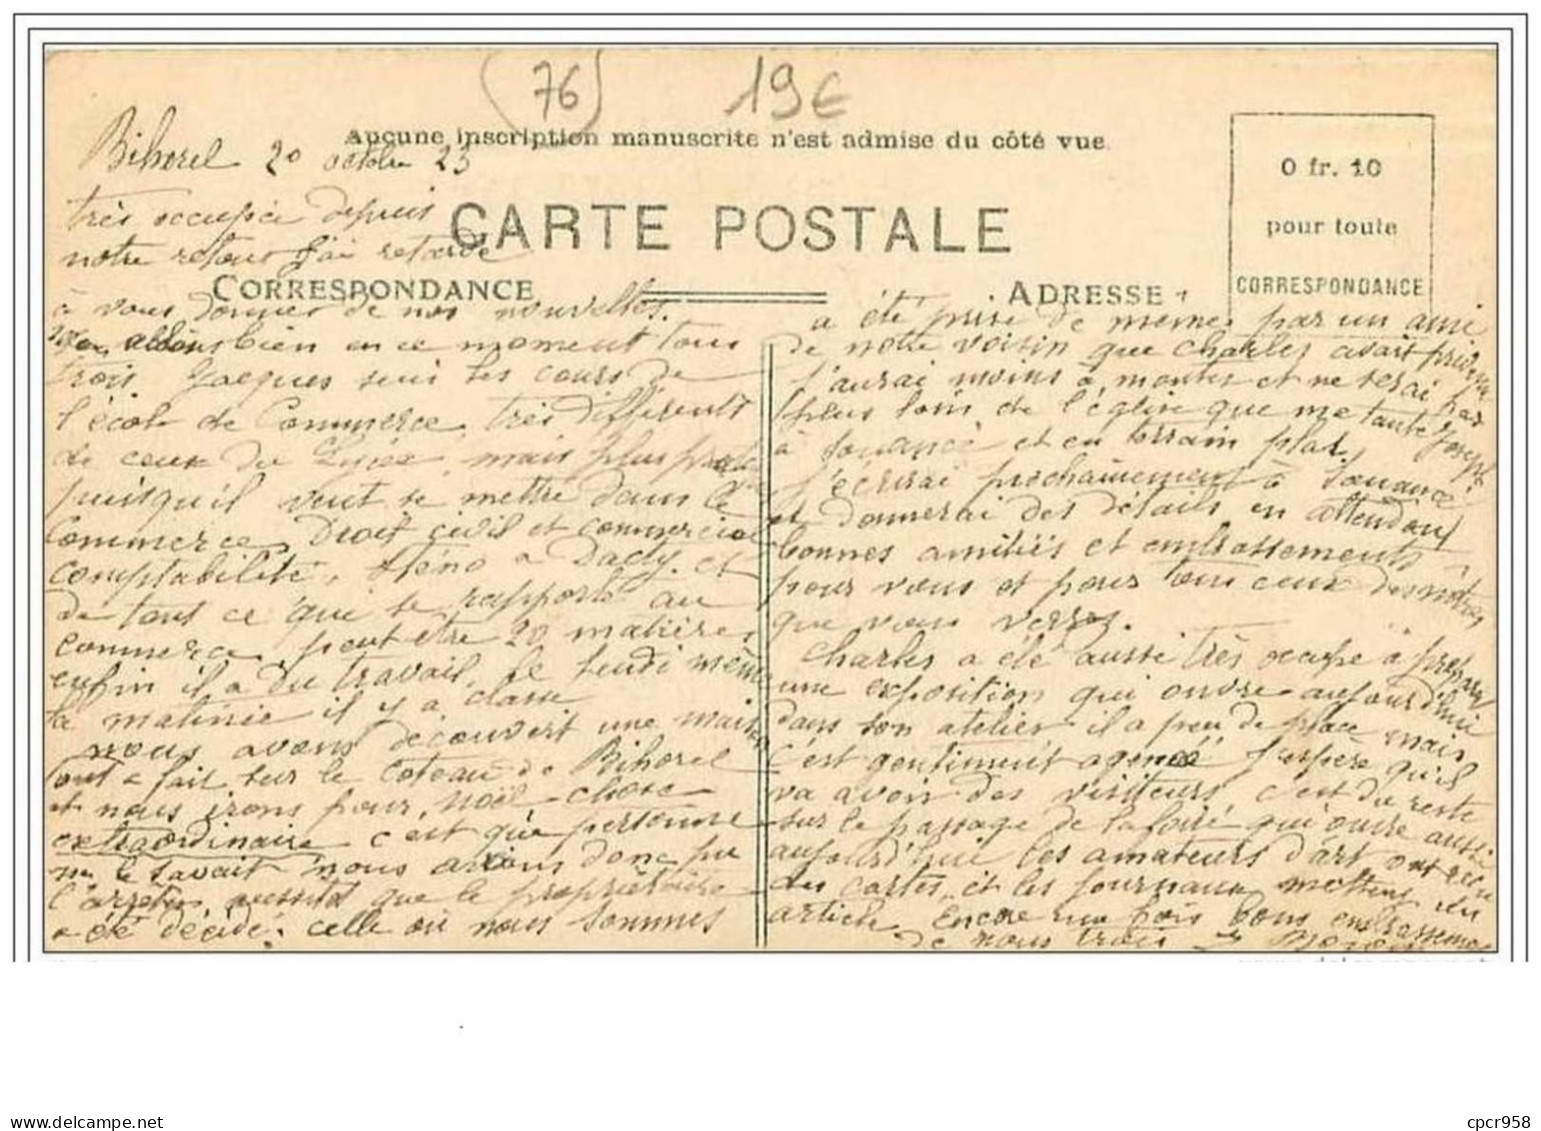 (76) 19€
Aucune inscription manuscrite n'est admise du côté vue
Bihorel 20 octobre 23
0 fr. 10
pour toute
CORRESPONDANCE
CARTE POSTALE
CORRESPONDANCE
ADRESSE
très occupée depuis
notre retour j'ai retardé
à vous donner de nos nouvelles.
allons bien en ce moment tous
trois Jacques suis les cours de
l'école de Commerce, très différent
de ceux du Lycée, mais plus
puisqu'il veut se mettre dans le
Commerce, Droit civil et commercial
comptabilité, sténo à Dacty. et
de tout ce qui se rapporte au
commerce, peut être 20 matières
enfin il a du travail, le jeudi même
la matinée il y a classe
nous avons découvert une maison
tout a fait sur le Coteau de Bihorel
et nous irons pour Noël - chose
extraordinaire c'est que personne
ne le savait nous avions donc pu
l'arrêter aussitot que le propriétaire
a été décidé; celle où nous sommes
a été prise de même, par un ami
de notre voisin que Charles avait prévenu
j'aurai moins à monter et ne serai pas
plus loin de l'église que me tante Joseph
à Souancé et en terrain plat,
j'écrirai prochainement à Souancé
et donnerai des détails en attendant
bonnes amitiés et embrassements
pour vous et pour tous ceux des nôtres
que vous verrez.
Charles a été aussi très occupé à préparer
une exposition qui ouvre aujourd'hui
dans son atelier il a peu de place mais
c'est gentiment agencé j'espère qu'il
va avoir des visiteurs, c'est du reste
sur le passage de la foire qui ouvre aussi
aujourd'hui les amateurs d'art ont reçu
des cartes, et les journaux mettent un
article. Encore une fois bons embrassements
de nous trois
cpcr958